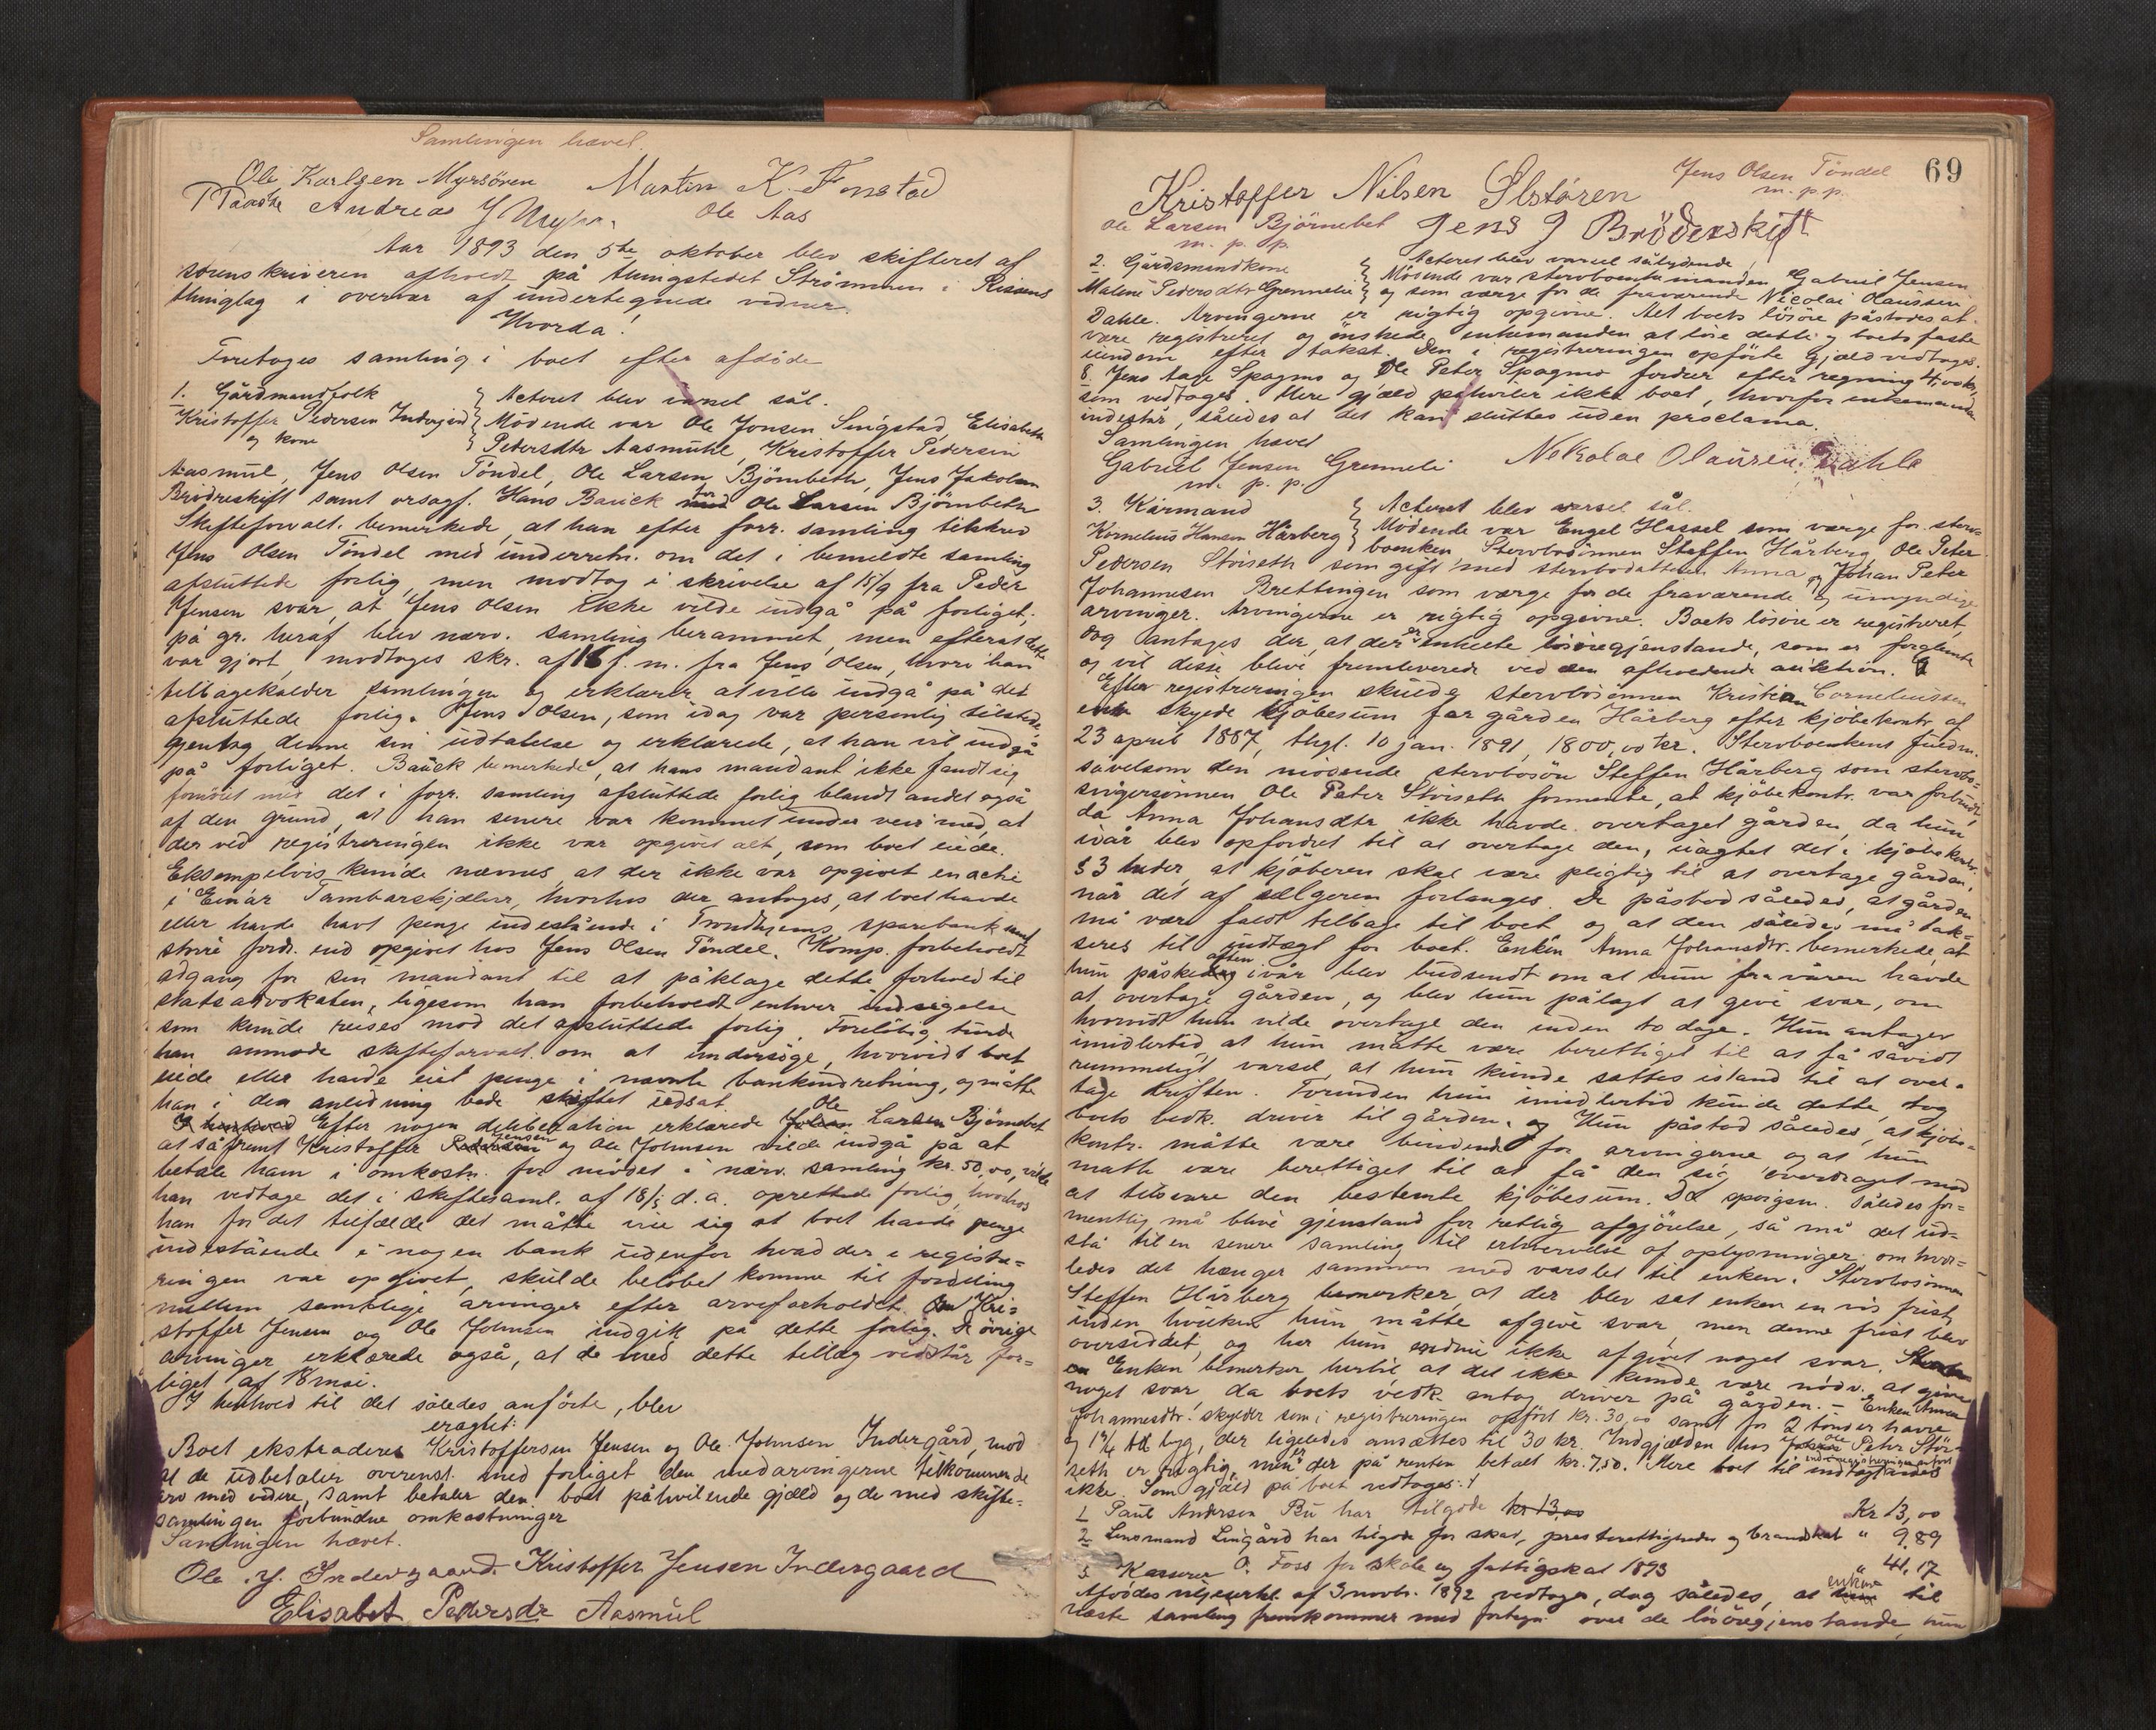 Samlingen hævet.
Ole Karlsen Myrsören Martin K. Fonstad
Andreas J Ole Aas
Aar 1893 den 5te oktober blev skifteret af
sorenskriveren afholdt på thingstedet Strömmen i Rissens
thinglag i overvær af undertegnede vidner.
Hvorda!
Foretoges samling i boet efter afdöde
1. Gårdmandsfolk } Acteret blev varsel sål.
Kristoffer Pedersen Indergård } Mödende var Ole Jonsen Singstad, Elisabeth
og kone } Pedersdtr Aasmühl, Kristoffer Pedersen
Aasmul, Jens Olsen Töndel, Ole Larsen Björnbeth, Jens Jakobsen
Brödreskift samt orsagf. Hans Bauck for Ole Larsen Björnbeth
Skifteforvalt. bemerkede, at han efter forr. samling tilskrev
Jens Olsen Töndel med underretn. om det i bemeldte samling
afsluttede forlig, men modtog i skrivelse af 15/9 fra Peder
Jensen svar, at Jens Olsen ikke vilde indgå på forliget;
på gr. heraf blev nærv. samling berammet, men efterat dette
var gjort, modtoges skr. af 16 f. m. fra Jens Olsen, hvori han
tilbagekalder samlingen og erklærer at ville indgå på det
afsluttede forlig. Jens Olsen, som idag var personlig tilstede,
gjentog denne sin udtalelse og erklærede, at han vil indgå
på forliget. Bauck bemerkede, at hans mandant ikke fandt sig
fornöiet med det i forr. samling afsluttede forlig blandt andet også
af den grund, at han senere var kommet under veir med, at
der ved registreringen ikke var opgivet alt, som boet eiede.
Eksempelvis kunde nævnes, at der ikke var opgivet en actie
i Einar Tambarskjelver, hvorhos der antoges, at boet havde
eller havde havt penge indestående i Trondhjems sparebank samt
större fordr. end opgivet hos Jens Olsen Töndel. Komp. forbeholdt
adgang for sin mandant til at påklage dette forhold til
statsadvokaten, ligesom han forbeholdt enhver indsigelse
som kunde reises mod det afsluttede forlig. Forelöbig turde
han anmode skifteforvalt. om at undersöge, hvorvidt boet
eiede eller havde eiet penge i nævnte bankindretning, og måtte
han i den anledning bede skiftet udsat.
Efter nogen deliberation erklærede Ole Larsen Björnebet
at såfremt Kristoffer Jensen og Ole Johnsen vilde indgå på at
betale ham i omkostn. for mödet i nærv. samling kr. 50,00, vilde
han vedtage det i skiftesaml. af 18/5 d. a. oprettede forlig, hvorhos
han for det tilfælde det måtte vise sig at boet havde penge
indestående i nogen bank udenfor hvad der i registre-
ringen var opgivet, skulde belöbet komme til fordeling
mellem samtlige arvinger efter arveforholdet. Kri-
stoffer Jensen og Ole Johnsen indgik på dette forlig. De övrige
arvinger erklærede også, at de med dette tillæg vedstår for-
liget af 18 mai.
I henhold til det således anförte, blev
eragtet:
Boet ekstraderes Kristoffersen Jensen og Ole Johnsen Indergård, mod
at de udbetaler overenst. med forliget den medarvingerne tilkommende
arv med videre, samt betaler den boet påhvilende gjæld og de med skifte-
samlingen forbundne omkostninger
Samlingen hævet.
Ole J. Indergaard Kristoffer Jensen Indergaard
Elisabet Pedersdr Aasmul
69
Jens Olsen Töndel
m. p. p.
Kristoffer Nilsen Ilstören
Ole Larsen Björnebet Jens J Bröderskift
m. p. p.
2. Gårdmandskone } Acteret blev varsel sålydende
Malene Pedersdtr Grønneli } Mödende var stervboenkemanden Gabriel Jensen
} og som værge for de fraværende Nicolai Olaussen
Dahle. Arvingerne er rigtig opgivne. Alt boets lösöre påstodes at
være registreret og önskede enkemanden at löse dette og boets faste
eiendom efter takst. Den i registreringen opförte gjæld vedtoges.
8. Jens Aage Spagmo og Ole Peter Spagmo fordrer efter regning 4,00 kr,
som vedtoges. Mere gjæld påhviler ikke boet, hvorfor enkemanden
indestår, således at det kan sluttes uden proclama.
Samlingen hævet
Gabriel Jensen Grenneli Nekolae Olausen Dahle
m. p. p.
3. Kårmand } Acteret blev varsel sål.
Kornelius Hansen Hårberg } Mödende var Engel Hassel som værge for sterv-
} boenken, Stervbosönnen Steffen Hårberg, Ole Peter
Pedersen Störseth som gift med stervbodatteren Anna, og Johan Peter
Johannesen Brettingen som værge for de fraværende og umyndige
arvinger. Arvingerne er rigtig opgivne. Boets lösöre er registreret,
dog antages der, at der er enkelte lösöregjenstande, som er forglemte
og vil disse blive fremleverede ved den afholdende auktion.
Efter registreringen skulde stervbosönnen Kristian Corneliussen
skyldte kjöbesum for gården Hårberg efter kjöbekontr. af
23 april 1887, thgl. 10 jan. 1891, 1800,00 kr. Stervboenkens fuldm.
såvelsom den mödende stervbosön Steffen Hårberg som stervbo-
svigersönnen Ole Peter Störseth formente, at kjöbekontr. var forbrudt,
da Anna Johansdtr ikke havde overtaget gården, da hun
ivår blev opfordret til at overtage den, uagtet det i kjöbekontr.
§ 3 heder, at kjöberen skal være pligtig til at overtage gården,
når det af sælgeren forlanges. De påstod således, at gården
må være faldt tilbage til boet og at den således må tak-
seres til indtægt for boet. Enken Anna Johansdtr. bemerkede, at
hun påskeaften ivår blev budsendt om at hun fra våren havde
at overtage gården, og blev hun pålagt at give svar, om
hvorvidt hun vilde overtage den inden to dage. Hun antager
imidlertid, at hun måtte være berettiget til at få såvidt
rummeligt varsel, at hun kunde sættes istand til at over-
tage driften. Forinden hun imidlertid kunde dette, tog
boets vedk. driver til gården. Hun påstod således, at kjöbe-
kontr. måtte være bindende for arvingerne og at hun
måtte være berettiget til at få den sig overdraget mod
at tilsvare den bestemte kjöbesum. Da spörgsm. således for-
mentlig må blive gjenstand for retlig afgjörelse, så må det ud-
stå til en senere samling til erhvervelse af oplysninger om hvor-
ledes det hænger sammen med varslet til enken. Stervbosönnen
Steffen Hårberg bemerker at der blev sat enken en vis frist,
inden hvilken hun måtte afgive svar, men denne frist blev
oversiddet, og har hun endnu ikke afgivet noget svar.
Enken bemerker hertil at det ikke kunde være nödv. at give
noget svar, da boets vedk. antog driver på gården. – Enken Anna
Johannesdtr. skylder som i registreringen opfört kr. 30,00 samt for 2 tönder havre
og 1¼ td byg, der ligeledes ansættes til 30 kr. Indgjælden hos Ole Peter Stör-
seth er rigtig, men er der på renten betalt kr. 7,50. Mere boet til indtægt end i registreringen anfört
ikke. Som gjæld på boet vedtoges:
1 Paul Andersen Bü har tilgode kr 13,00 Kr 13,00
2. Lensmand Lingård har tilgode for skat, presterettigheder og brandskat " 9,89
3. Kasserer O. Foss for skole og fattigskat 1893 " 41,17
Afdödes viljeserkl. af 3 novb. 1892 vedtoges, dog således, at enken til
næste samling fremkommer med fortegn. over de lösöregjenstande, hun